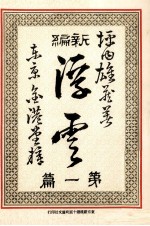 坪内雄蔵著
新編
浮雲
第一篇
東京 金港堂梓